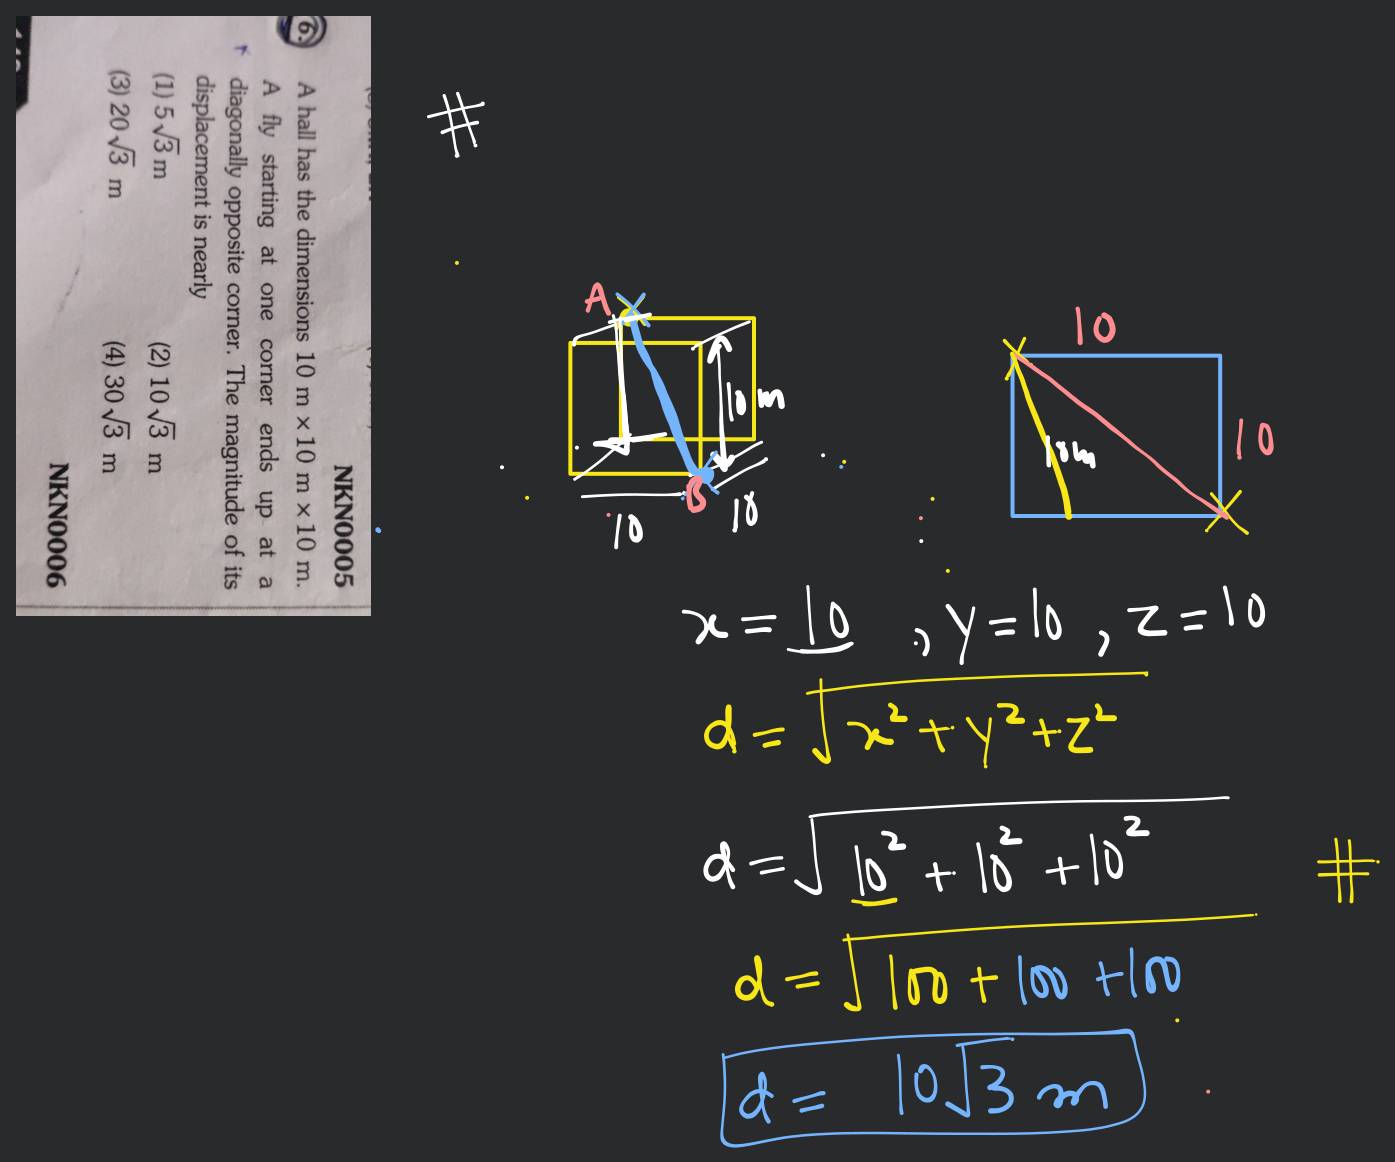 NKN0005
6. A hall has the dimensions 10 m × 10 m × 10 m.
A fly starting at one corner ends up at a
diagonally opposite corner. The magnitude of its
displacement is nearly
(1) 5√3 m (2) 10√3 m
(3) 20√3 m (4) 30√3 m
NKN0006
#
A
10 m
B
10
10
10
10
10m
x = 10 , y = 10 , z = 10
d = √x² + y² + z²
d = √10² + 10² + 10²
#
d = √100 + 100 + 100
d = 10√3 m